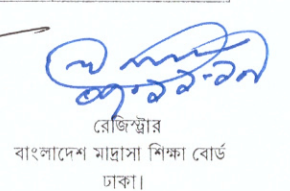 রেজিস্ট্রার
বাংলাদেশ মাদ্রাসা শিক্ষা বোর্ড
ঢাকা।